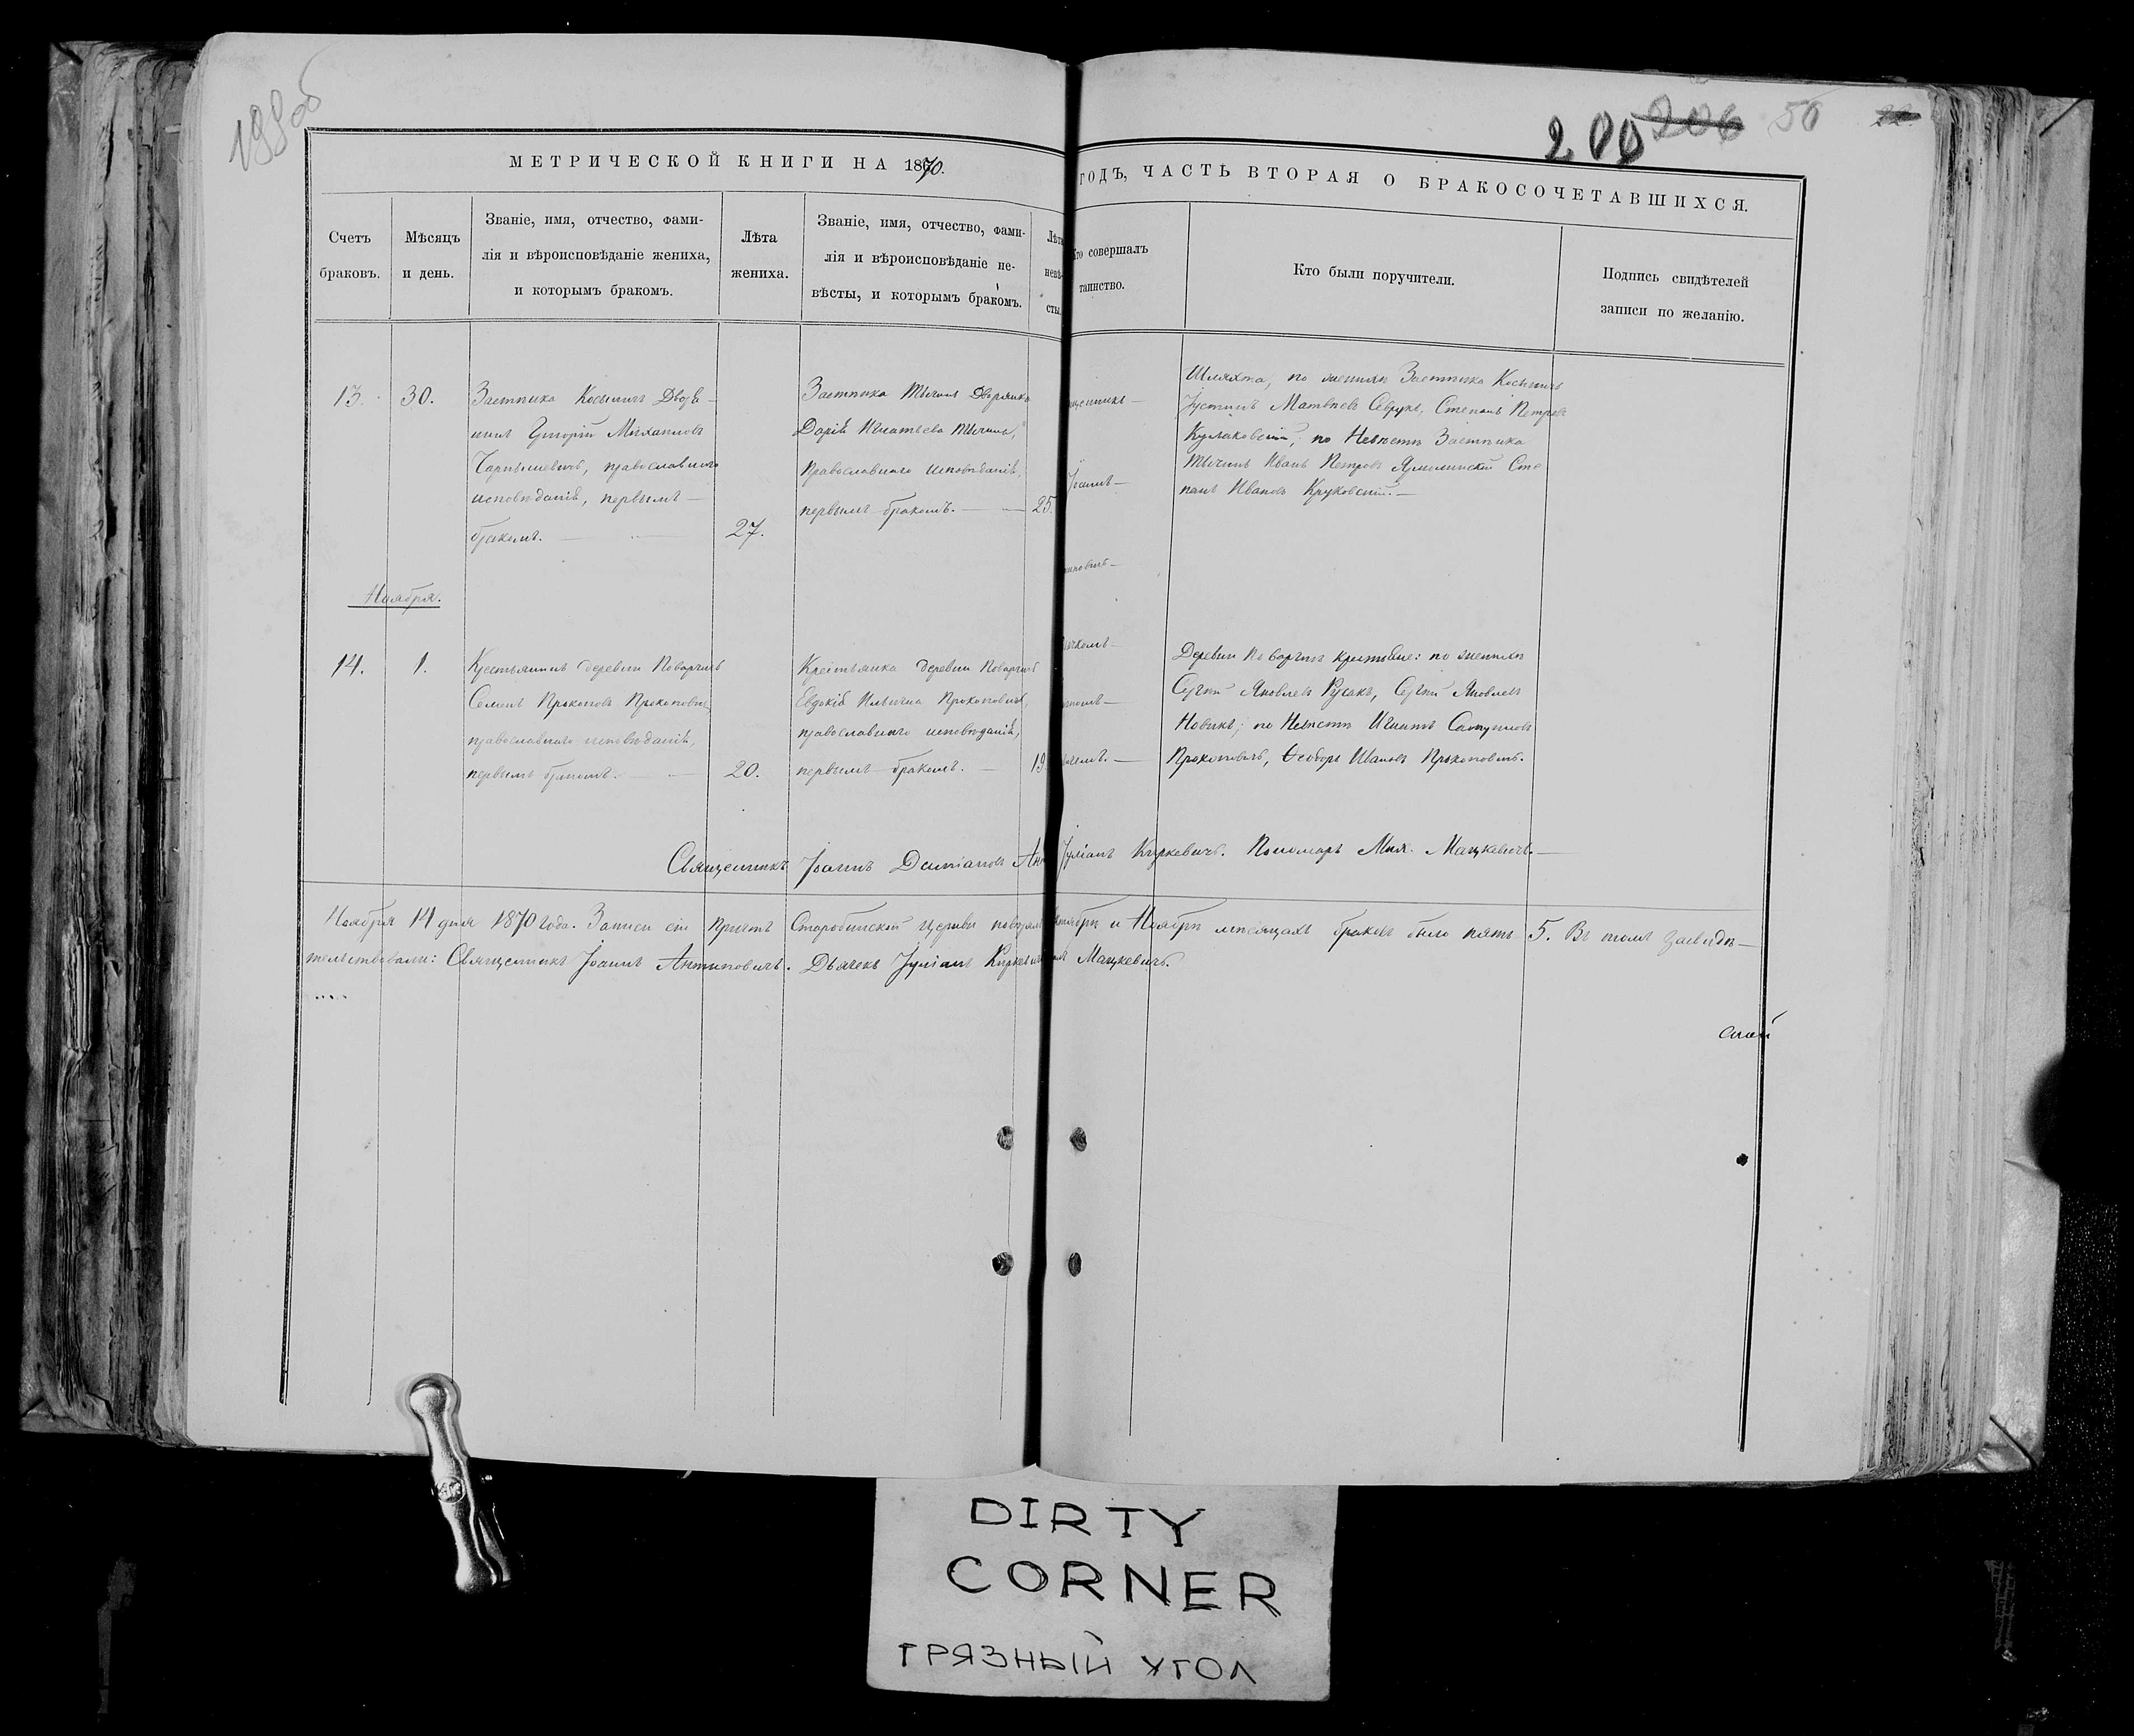 199об
200 206 50 22.
МЕТРИЧЕСКОЙ КНИГИ НА 1870.
ГОДЪ, ЧАСТЬ ВТОРАЯ О БРАКОСОЧЕТАВШИХСЯ.
Счетъ браковъ.
Мѣсяцъ и день.
Званіе, имя, отчество, фами-
лія и вѣроисповѣданіе жениха,
и которымъ бракомъ.
Лѣта
жениха.
Званіе, имя, отчество, фами-
лія и вѣроисповѣданіе не-
вѣсты, и которымъ бракомъ.
Лѣта
невѣ-
сты.
то совершалъ
таинство.
Кто были поручители.
Подпись свидѣтелей
записи по желанію.
13. 30.
Застѣнка Дворя-
нинъ Григорій Михаиловъ
православнаго
исповѣданія, первымъ
бракомъ.
27.
Застѣнка Тычинъ Дворянка
Дарія Игнатьева Тычина,
православнаго исповѣданія,
первымъ бракомъ.
25.
Іоаннъ
Шляхта, по женихѣ Застѣнка
Іустинъ Матвѣевъ Севрукъ, Степанъ Петровъ
Кулаковскій, по Невѣстѣ Застѣнка
Тычинъ Иванъ Петровъ Сте
панъ Ивановъ Круковскій.
Ноября.
14. 1.
Крестьянинъ деревни Поварчицъ
Семенъ Прокоповъ Прокоповичъ,
православнаго исповѣданія,
первымъ бракомъ.
20.
Крестьянка деревни Поварчицъ
Евдокія Ильина Прокоповичъ,
православнаго исповѣданія,
первымъ бракомъ.
19.
Деревни Поварчицъ крестьяне: по женихѣ
Сергій Яковлевъ Русакъ, Сергій Яковлевъ
Новикъ; по Невѣстѣ Игнатъ
Прокоповичъ, Ѳеодоръ Ивановъ Прокоповичъ.
Священникъ Іоаннъ Даміановъ Ан Іуліанъ Киркевичъ. Пономарь Мих. Мацкевичъ.
Ноября 14 дня 1870 года. Записи сіи Причтъ Старобинской церкви Октябрѣ и Ноябрѣ мѣсяцахъ браковъ было пять 5. Въ томъ засвидѣ-
тельствовали: Священникъ Іоаннъ Антиповичъ. Дьячекъ Іуліанъ Киркевичъ Мацкевичъ.
DIRTY
CORNER
ГРЯЗНЫЙ УГОЛ